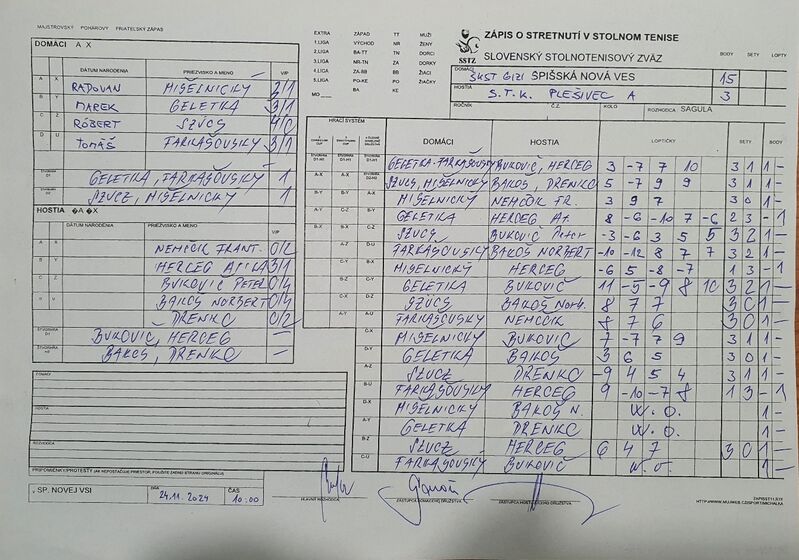 MAJSTROVSKÝ POHÁROVÝ PRIATEĽSKÝ ZÁPAS
DOMÁCI A X
DÁTUM NARODENIA PRIEZVISKO A MENO V/P
A X RADOVAN MIŠELNICKÝ 3/1
B Y MAREK GELETKA 3/1
C Z RÓBERT SZÜCS 4/0
D U TOMÁŠ FARKAŠOVSKÝ 3/1
ŠTVORHRA D1 GELETKA, FARKAŠOVSKÝ 1
D2 SZUCZ, MIŠELNICKÝ 1
HOSTIA �A �X
DÁTUM NARODENIA PRIEZVISKO A MENO V/P
A X NEMČOK FRANT. 0/2
B Y HERCEG ATILA 3/1
C Z BUKOVIČ PETER 0/4
BAKOŠ NORBERT 0/4
DRENKO 0/2
ŠTVORHRA D1 BUKOVIČ, HERCEG –
BAKOŠ, DRENKO –
DOMÁCI
HOSTIA
ROZHODCA
PRIPOMIENKY/PROTESTY (AK NEPOSTAČUJE PRIESTOR, POUŽITE ZADNÚ STRANU ORIGINÁLU)
, SP. NOVEJ VSI DŇA 24.11.2024 ČAS 10:00
EXTRA ZÁPAD TT MUŽI
1.LIGA VÝCHOD NR ŽENY
2.LIGA BA-TT TN DORCI
3.LIGA NR-TN ZA DORKY
4.LIGA ZA-BB BB ŽIACI
5.LIGA PO-KE PO ŽIAČKY
MO BA KE
SSTZ
ZÁPIS O STRETNUTÍ V STOLNOM TENISE
SLOVENSKÝ STOLNOTENISOVÝ ZVÄZ
BODY SETY LOPTY
DOMÁCI ŠKST GIZI SPIŠSKÁ NOVÁ VES 15
HOSTIA S.T.K. PLEŠIVEC A 3
ROČNÍK Č.Z. KOLO ROZHODCA SAGULA
HRACÍ SYSTÉM DOMÁCI HOSTIA LOPTIČKY SETY BODY
GELETKA-FARKAŠOVSKÝ BUKOVIČ, HERCEG 3 -7 7 10 3 1 1 –
SZUCS, MIŠELNICKÝ BAKOŠ, DRENKO 5 -7 9 9 3 1 1 –
A-X MIŠELNICKÝ NEMČOK FR. 3 9 7 3 0 1 –
B-Y GELETKA HERCEG At. 8 -6 -10 7 -6 2 3 – 1
SZUCS BUKOVIČ Peter -3 -6 3 5 5 3 2 1 –
FARKAŠOVSKÝ BAKOŠ NORBERT -10 -12 8 7 7 3 2 1 –
MIŠELNICKÝ HERCEG -6 5 -8 -7 1 3 – 1
GELETKA BUKOVIČ 11 -5 -9 8 10 3 2 1 –
SZÜCS BAKOŠ Norb. 8 7 7 3 0 1 –
FARKAŠOVSKÝ NEMČOK 8 7 6 3 0 1 –
C-X MIŠELNICKÝ BUKOVIČ 7 -7 7 9 3 1 1 –
D-Y GELETKA BAKOŠ 3 6 5 3 0 1 –
A-Z SZUCZ DRENKO -9 4 5 4 3 1 1 –
B-U FARKAŠOVSKÝ HERCEG 9 -10 -7 8 1 3 – 1
D-X MIŠELNICKÝ BAKOŠ N. W.O. 1 –
A-Y GELETKA DRENKO W.O. 1 –
B-Z SZUCZ HERCEG 6 4 7 3 0 1 –
C-U FARKAŠOVSKÝ BUKOVIČ W.O. 1 –
HLAVNÝ ROZHODCA ZÁSTUPCA DOMÁCEHO DRUŽSTVA ZÁSTUPCA HOSŤUJÚCEHO DRUŽSTVA